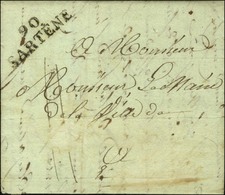 90
SARTENE
A Monsieur
Monsieur Le Maire
de la Ville de